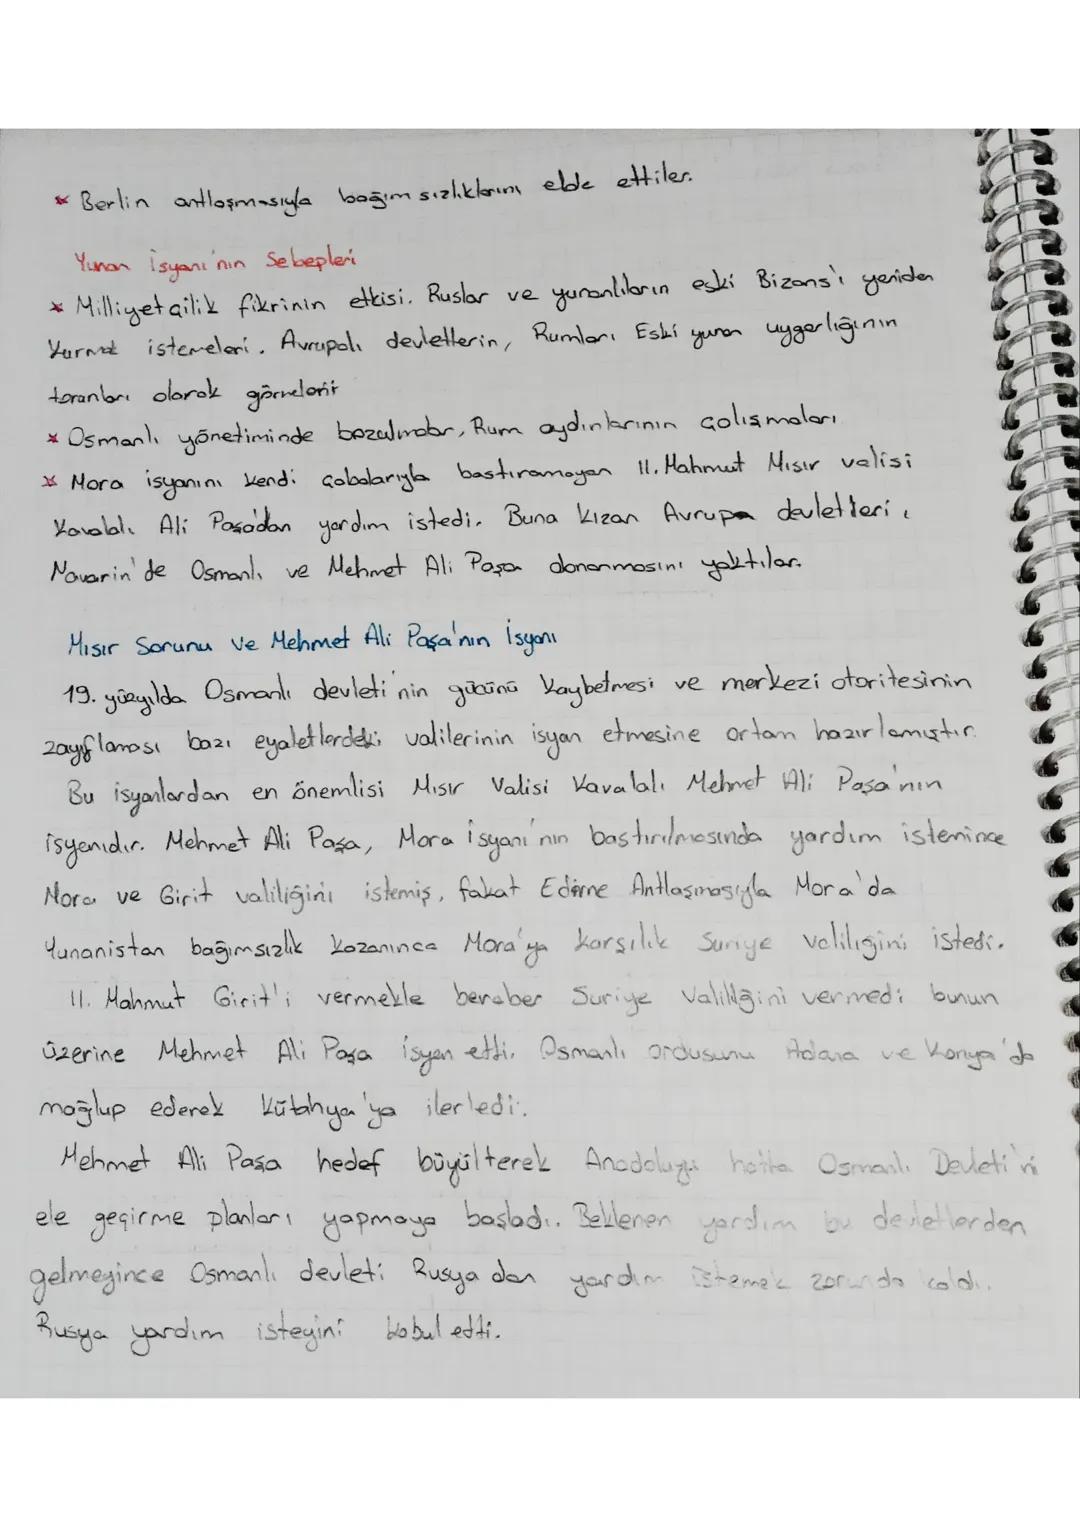 * Berlin antlaşmasıyla bağımsızlıklarını elde ettiler.
Yunan İsyanı'nın Sebepleri
* Milliyetçilik fikrinin etkisi. Ruslar ve yunanlıların eski Bizans'ı yeniden
kurmak istemeleri. Avrupalı devletlerin, Rumları Eski yunan uygarlığının
toranları olarak görmeleri
* Osmanlı yönetiminde bozulmalar, Rum aydınlarının çalışmaları
* Mora isyanını kendi çabalarıyla bastıramayan II. Mahmut Mısır valisi
Kavalalı Ali Paşa'dan yardım istedi. Buna kızan Avrupa devletleri,
Navarin'de Osmanlı ve Mehmet Ali Paşa donanmasını yaktılar.
Mısır Sorunu ve Mehmet Ali Paşa'nın İsyanı
19. yüzyılda Osmanlı devleti'nin gücünü kaybetmesi ve merkezi otoritesinin
zayıflaması bazı eyaletlerdeki valilerinin isyan etmesine ortam hazırlamıştır.
Bu isyanlardan en önemlisi Mısır Valisi Kavalalı Mehmet Ali Paşa'nın
isyenıdır. Mehmet Ali Paşa, Mora İsyanı'nın bastırılmasında yardım istenince
Mora ve Girit valiliğini istemiş, fakat Edirne Antlaşmasıyla Mora'da
Yunanistan bağımsızlık kazanınca Mora'ya karşılık Suriye valiliğini istedi.
II. Mahmut Girit'i vermekle beraber Suriye Valiliğini vermedi bunun
üzerine Mehmet Ali Paşa isyan etti. Osmanlı ordusunu Adana ve Konya'da
mağlup ederek Kütahya'ya ilerledi.
Mehmet Ali Paşa hedef büyülterek Anadoluyu hatta Osmanlı Devleti'ni
ele geçirme planları yapmaya başladı. Beklenen yardım bu devletlerden
gelmeyince Osmanlı devleti Rusya dan yardım istemek zorunda kaldı.
Rusya yardım isteyini kabul etti.